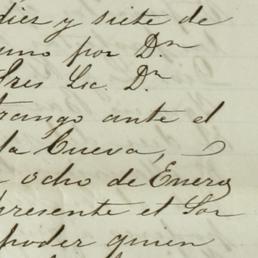 diez y siete de
uno por Dn
Sres Lic. Dn
rango ante el
la Cueva,
ocho de Enero
presente el Sor
poder quien